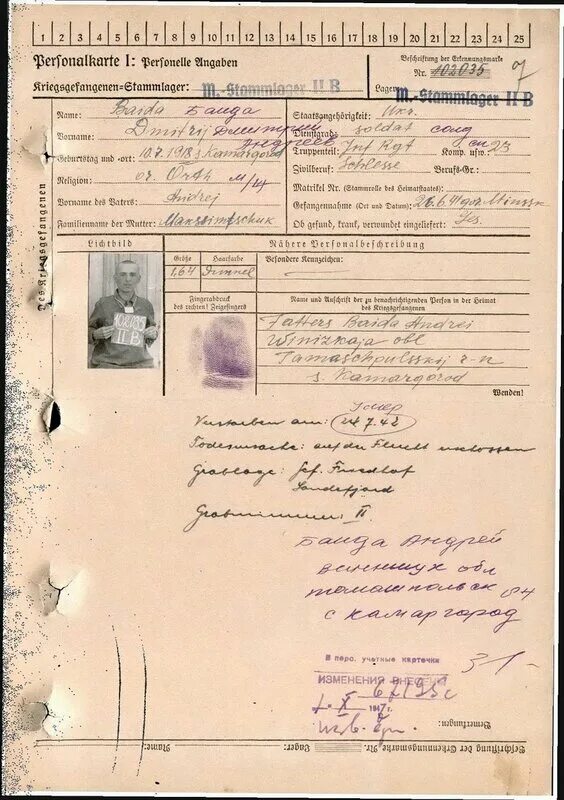 1 2 3 4 5 6 7 8 9 10 11 12 13 14 15 16 17 18 19 20 21 22 23 24 25
Personalkarte I: Personelle Angaben
Beschriftung der Erkennungsmarke
Nr. 102035
7
Kriegsgefangenen-Stammlager: M.-Stammlager II B
Lager: M.-Stammlager II B
Des Kriegsgefangenen
Name: Baida Баида
Vorname: Dmitrij Дмитрий
Андреев
Geburtstag und -ort: 10.7.1918 s. Kamargorod
Religion: or. Orth
Vorname des Vaters: Andrej
Familienname der Mutter: Makssimtschuk
Staatsangehörigkeit: Ukr.
Dienstgrad: soldat солд
Truppenteil: Inf Rgt Komp. usw.: 23
Zivilberuf: Schlosse Berufs-Gr.:
Matrikel Nr. (Stammrolle des Heimatstaates):
Gefangennahme (Ort und Datum): 26.6.41 gor Minssk
Ob gesund, krank, verwundet eingeliefert: Ges.
Lichtbild
Nähere Personalbeschreibung
Größe
Haarfarbe
Besondere Kennzeichen:
1,64
Dunkel
II B
Fingerabdruck
des rechten! Zeigefingers
Name und Anschrift der zu benachrichtigenden Person in der Heimat
des Kriegsgefangenen
Vatters Baida Andrei
Winizkaja obl
Tamaschpulsskij r-n
s. Kamargorod
Wenden!
умер
Verstorben am: 24.7.42
Todesursache: auf der Flucht erschossen
Grablage: Gef. Friedhof
Sandefjord
Grabnummer: II.
Баида Андрей
обл
томашпольск р-н
с камаргород
В перс. учетные карточки
ИЗМЕНЕНИЯ ВНЕСЕНЫ
31-
X 1947 г.
Bemerkungen:
Beschriftung der Erkennungsmarke Nr.
Lager:
Name: